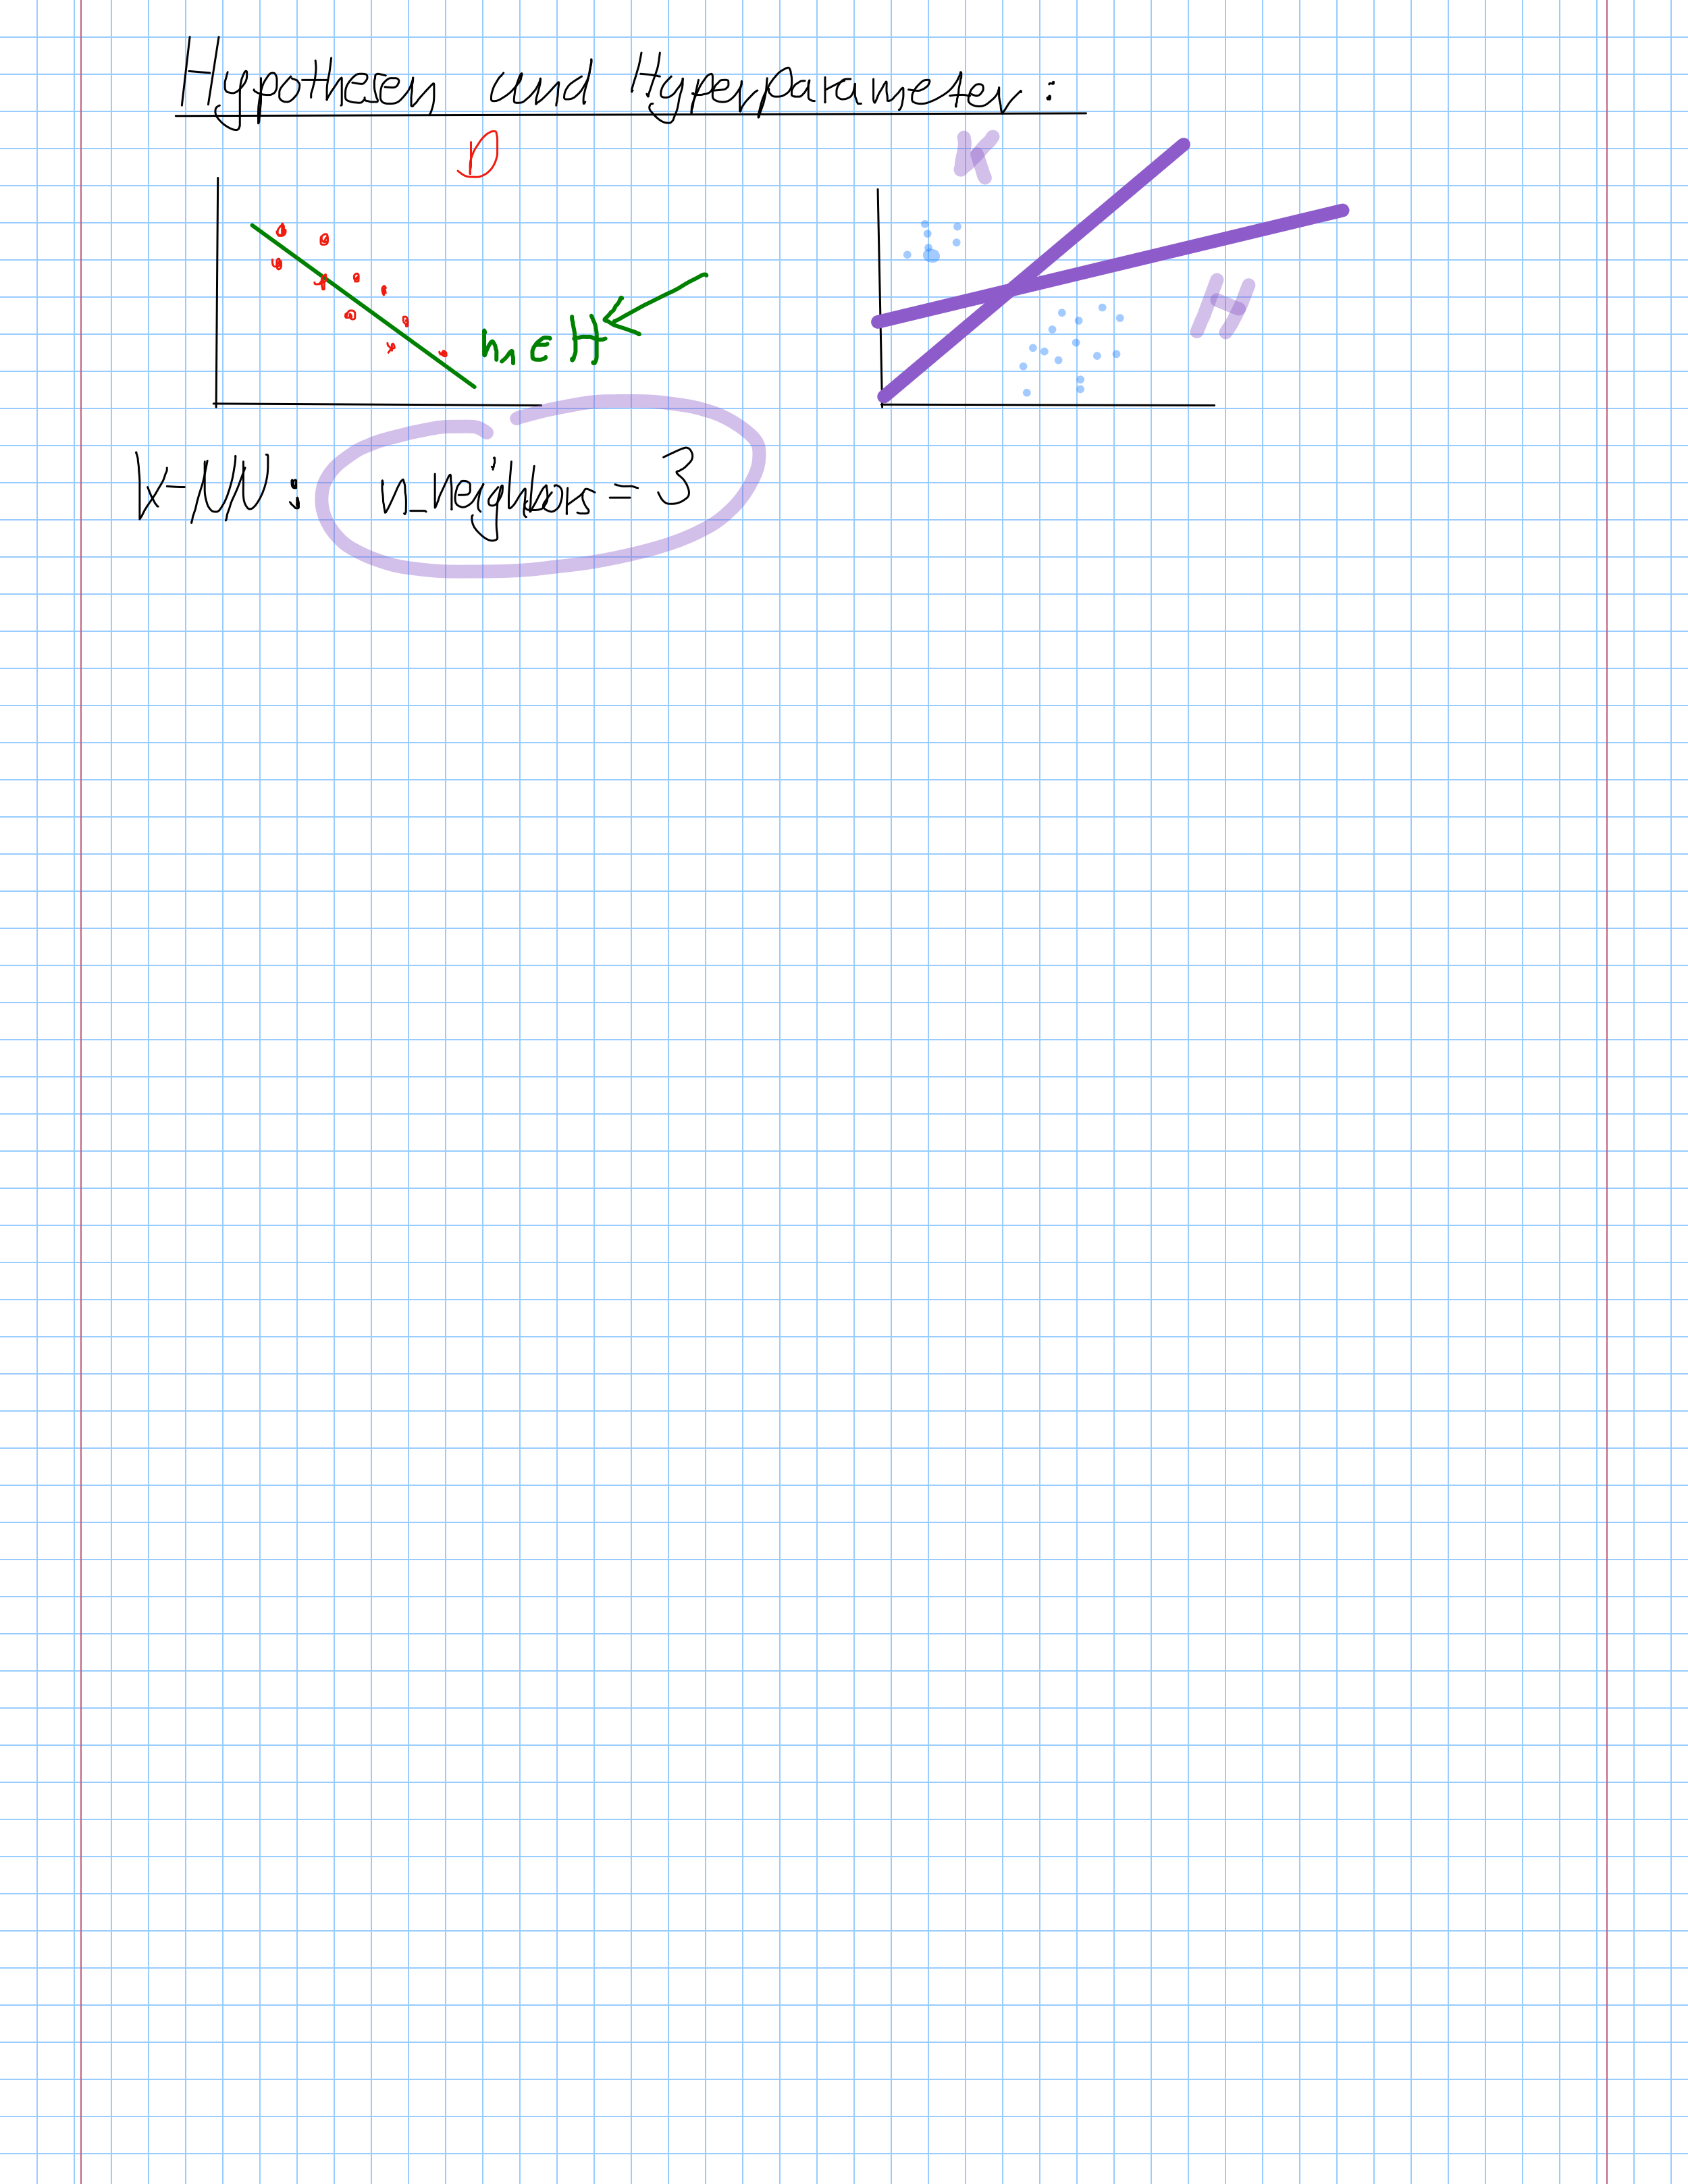 Hypothesen und Hyperparameter:
D
K
h₁ ∈ H
H
K-NN: n_neighbors = 3